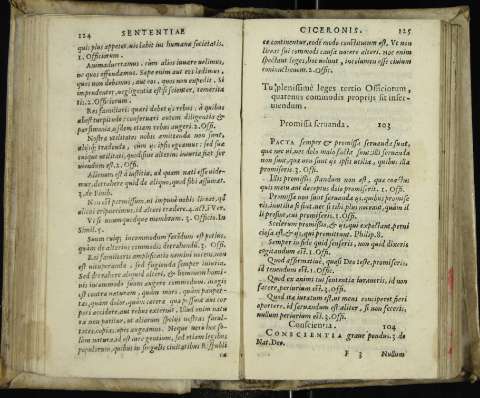 124 SENTENTIAE
quis plus appetet, violabit ius humanæ societatis.
1. Officiorum.
Animaduertamus, cum alios iuuare uelimus,
ne quos offendamus. Sæpe enim aut eos lædimus,
quos non debemus, aut eos, quos non expedit, si
imprudenter, negligentia est: si scienter, temeritatis. 2. Officiorum.
Res familiaris quæri debet ijs rebus, à quibus
abest turpitudo: conseruari autem diligentia &
parsimonia, ijsdem etiam rebus augeri. 2. Offi.
Nostræ utilitates nobis amittendæ non sunt,
alijsque tradendæ, cum ijs ipsi egeamus: sed suæ
cuique utilitati, quod sine alterius iniuria fiat seruiendum est. 2. Off.
Alienum est à iustitia,
detrahere quid de aliquo, quod sibi assumat.
Suum cuique incommodum ferendum est potius,
quàm de alterius commodis detrahendū. 3. Offi.
Rei familiaris amplificatio nemini nocens, non
est uituperanda, sed fugienda semper iniuria.
Sed detrahere aliquid alteri, & hominem hominis incommodo suum augere commodum, magis
est contra naturam, quàm mors, quàm paupertas, quàm dolor, quàm cætera quæ possunt aut corpori accidere, aut rebus externis. Illud enim natura non patitur, ut aliorum spolijs nostras facultates, copias, opes augeamus. Neque uero hoc solùm natura, id est iure gentium, sed etiam legibus
populorum, quibus in singulis ciuitatibus Respubli
ca
CICERONIS. 125
ca continetur, eodē modo constitutum est, Vt non
liceat sui commodi causa nocere alteri. Hoc enim
spectant leges, hoc uolunt, incolumem esse ciuium
coniunctionem. 3. Offic.
Tu plenissime leges tertio Officiorum,
quatenus commodis proprijs sit inseruiendum.
Promissa seruanda. 103
PACTA semper & promissa seruanda sunt,
quæ nec ui, nec dolo malo facta sunt: illa seruanda
non sunt, quæ non sunt ijs ipsis utilia, quibus illa
promiseris. 3. Off.
Illis promissis standum non est, quæ coactus
quis metu aut deceptus dolo promiserit. 1. Off.
Promissa non sunt seruanda ijs, quibus promiseris, inutilia si sint, nec si tibi plus noceant, quàm illi prosint, cui promiseris. 1. Off.
Scelerum promissio, & ijs, qui expectant, perniciosa est, & ijs, qui promittunt. Philip. 8.
Semper in fide quid senseris, non quid dixeris
cogitandum est. 1. Off.
Quod affirmatè, quasi Deo teste, promiseris,
id tenendum est. 3. Offic.
Quod ex animi tui sententia iuraueris, id non
facere, periurium est. 3. Off.
Quod ita iuratum est, ut mens conciperet fieri
oportere, id seruandum est: aliter, si non feceris,
nullum periurium est. 3. Off.
Conscientia. 104
CONSCIENTIÆ graue pondus. 3. de
Nat. Deo.
F 3 Nullum